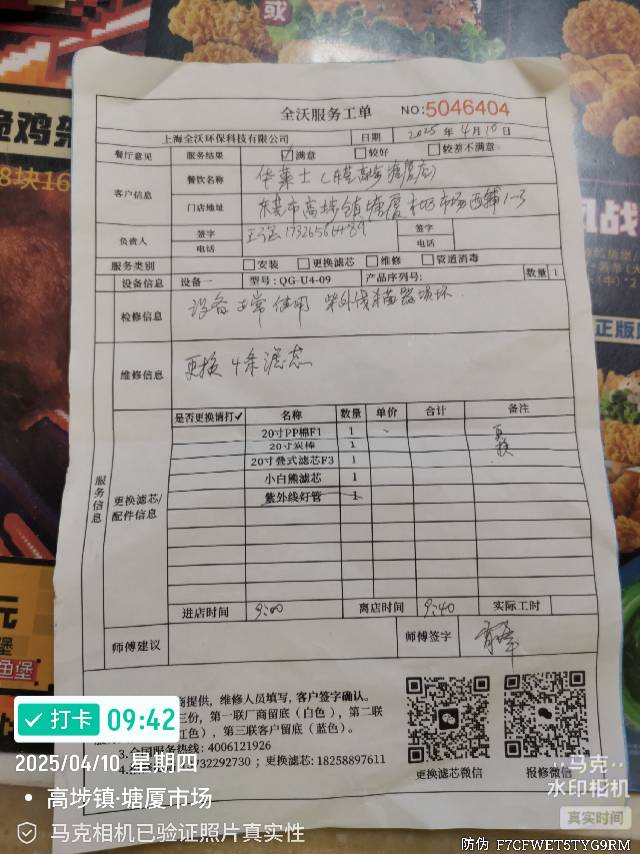 或
脆鸡架
8块16
全沃服务工单 NO:5046404
上海全沃环保科技有限公司 日期 2025年4月10日
餐厅意见 服务结果 ☑满意 □较好 □较差不满意
客户信息 餐饮名称 华莱士(东莞高埗塘厦店)
门店地址 东莞市高埗镇塘厦 市场西铺1-3
负责人 签字 签字
电话 电话
服务类别 □安装 □更换滤芯 □维修 □管道消毒
设备信息 设备一 型号:QG-U4-09 产品序列号: 数量 1
检修信息 设备正常使用 紫外线杀菌器损坏.
维修信息 更换4条滤芯
服务信息
更换滤芯/配件信息
是否更换请打✓ 名称 数量 单价 合计 备注
20寸PP棉F1 1 更换
20寸炭棒 1
20寸叠式滤芯F3 1
小白熊滤芯 1
紫外线灯管 1
进店时间 9:00 离店时间 9:40 实际工时
师傅建议 师傅签字
商提供,维修人员填写,客户签字确认。
三份,第一联厂商留底(白色),第二联
红色),第三联客户留底(蓝色)。
3.全国服务热线:4006121926
732292730;更换滤芯:18258897611
更换滤芯微信 报修微信
正版
元
堡
鱼堡
打卡 09:42
2025/04/10 星期四
高埗镇·塘厦市场
马克相机已验证照片真实性
马克
水印相机
真实时间
防伪 F7CFWET5TYG9RM